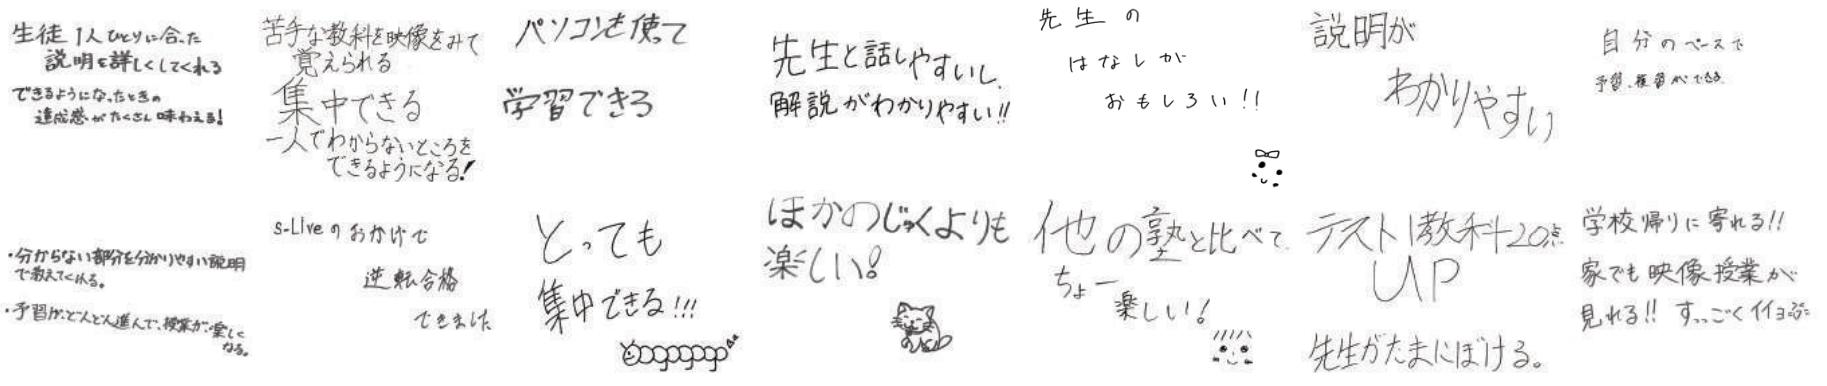 生徒1人ひとりに合った
説明を詳しくしてくれる
できるようになったときの
達成感がたくさん味わえる!
苦手な教科を映像をみて
覚えられる
集中できる
一人でわからないところを
できるようになる!
パソコンを使って
学習できる
先生と話しやすいし、
解説がわかりやすい!!
先生の
はなしが
おもしろい!!
説明が
わかりやすい
自分のペースで
予習、復習ができる
・分からない部分を分かりやすい説明
で教えてくれる。
・予習がどんどん進んで、授業が楽しく
なる。
s-Liveのおかげで
逆転合格
できました
とっても
集中できる!!!
ほかのじゅくよりも
楽しい!
他の塾と比べて
ちょー
楽しい!
テスト1教科20点
UP
先生がたまにぼける。
学校帰りに寄れる!!
家でも映像授業が
見れる!! すっごくイイヨ